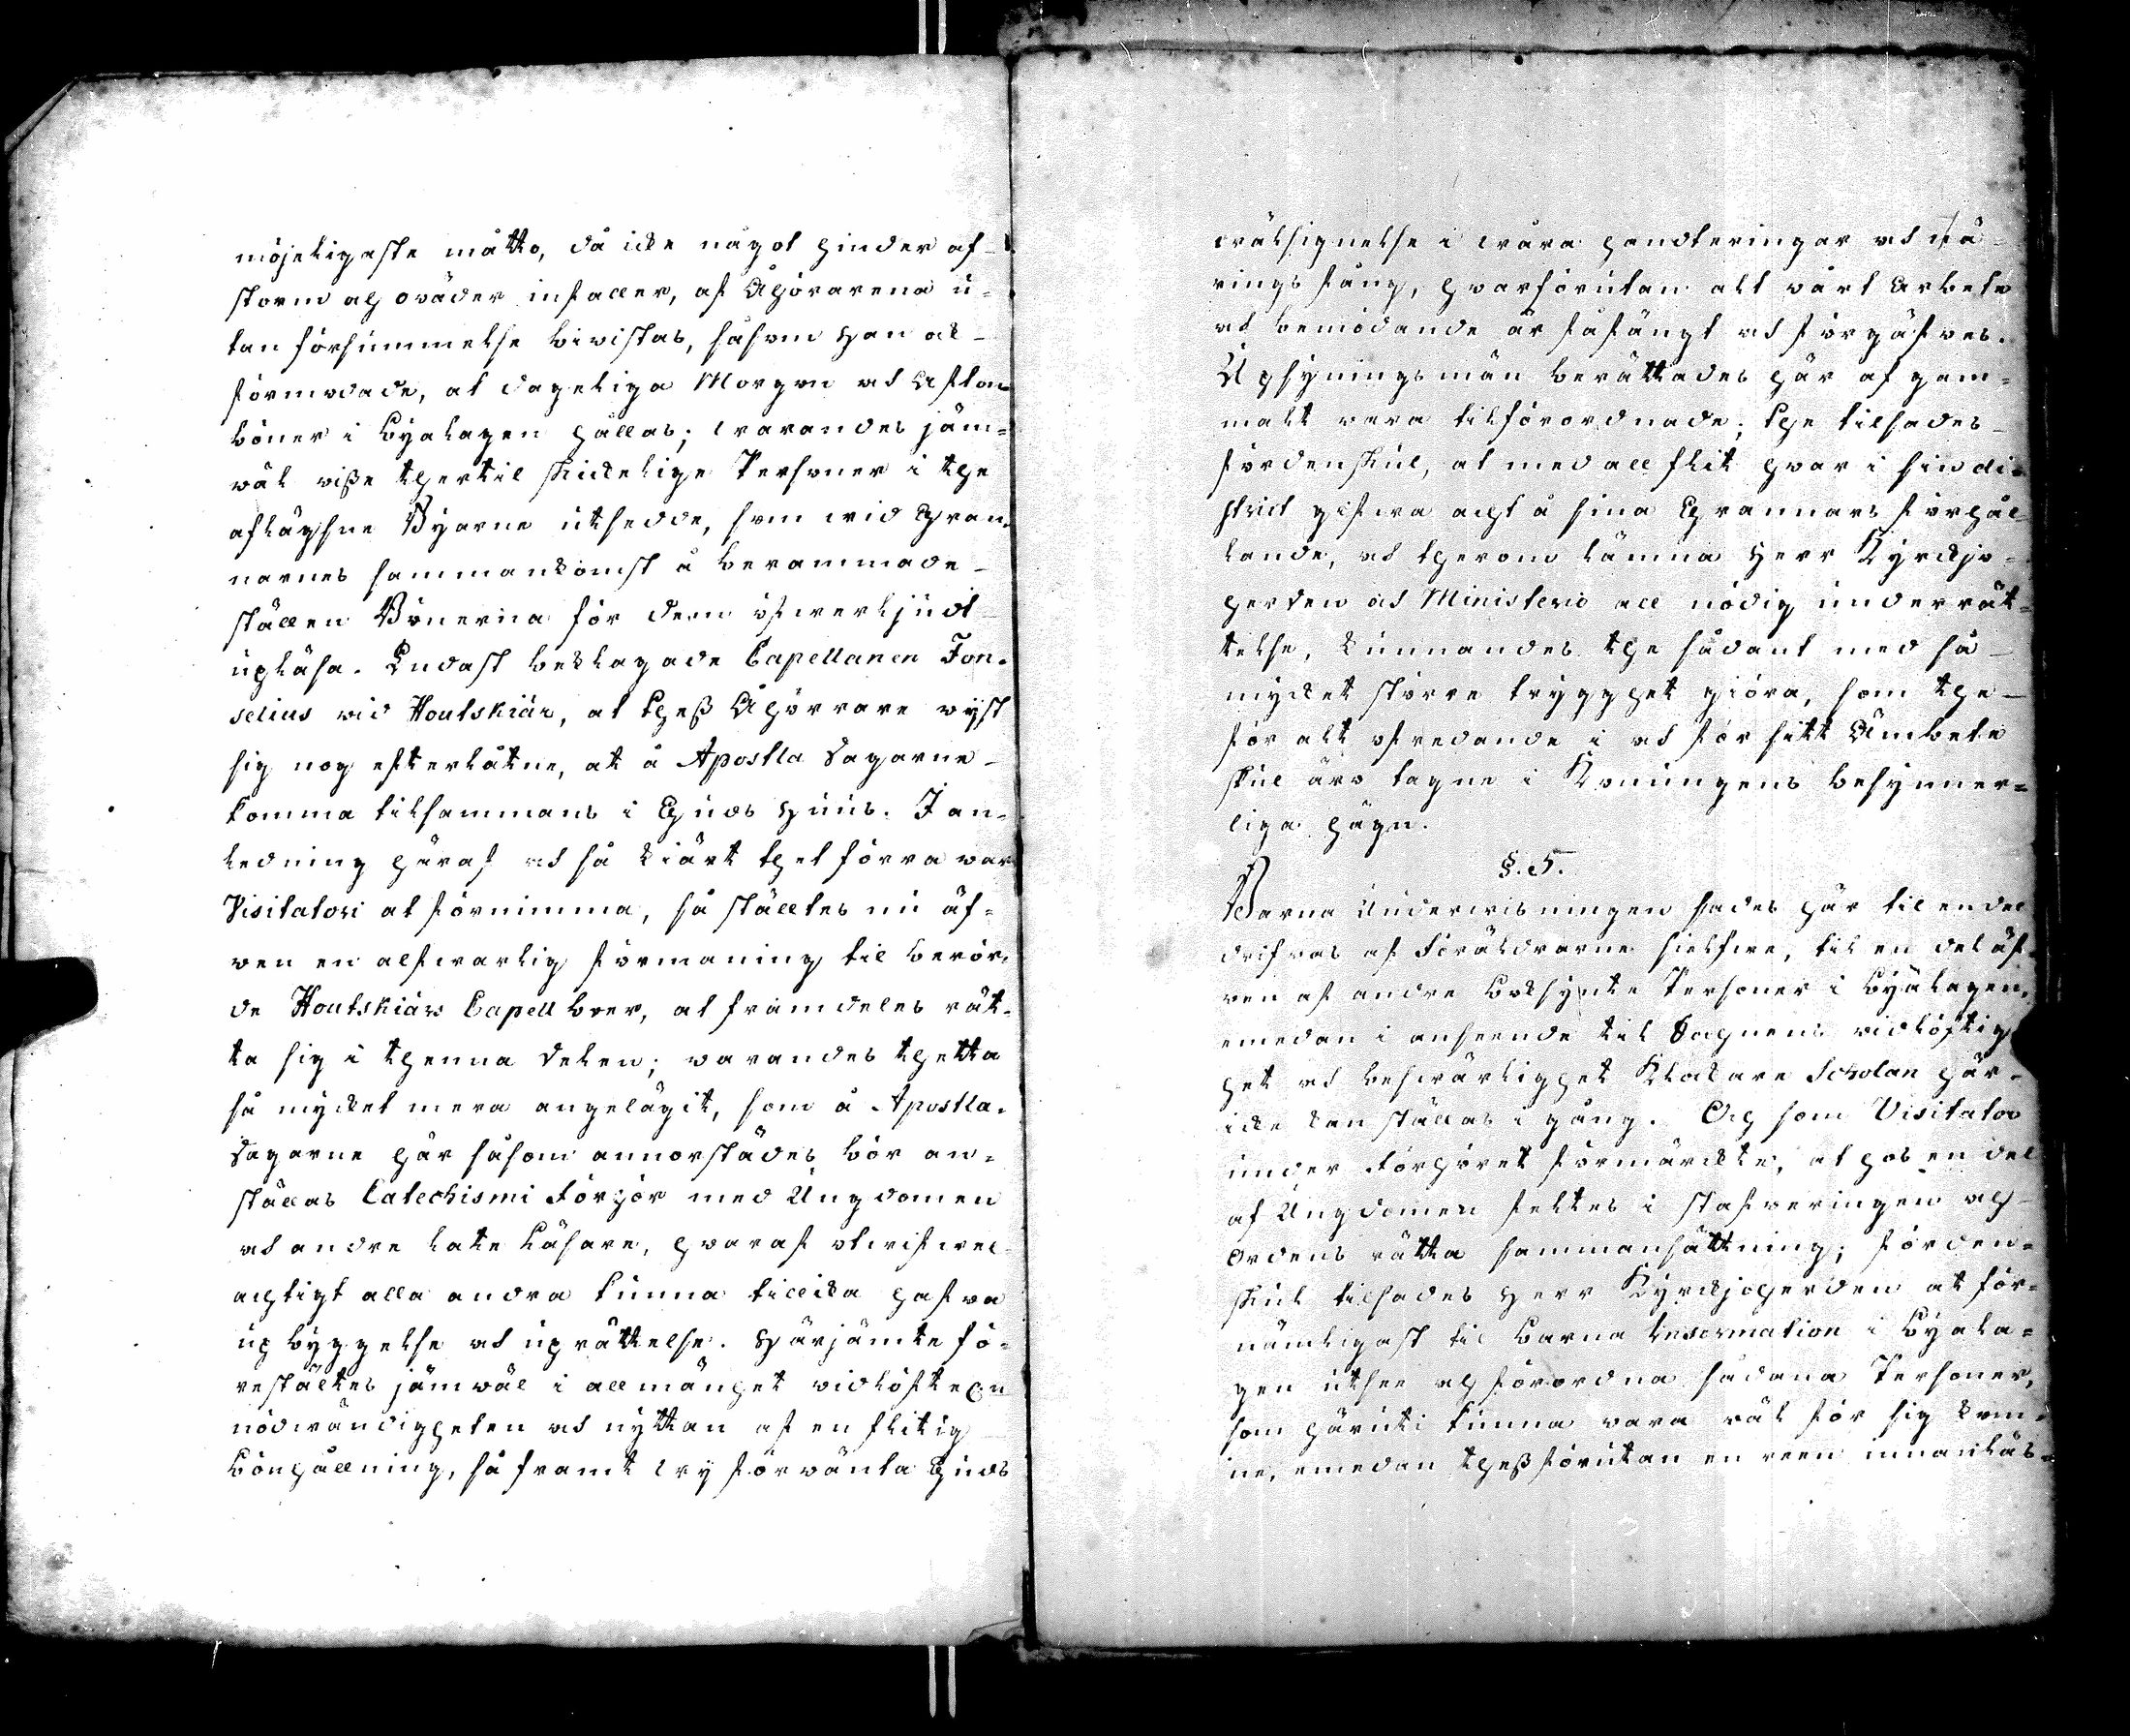 möjeligaste måtto, då icke något hinder af
storm och oväder infaller, af Åhörarena u-
tan försummelse bivistas, såsom han ock
förmodade, at dageliga Morgon och Afton
böner i byalagen hållas; warandes jäm-
wäl visse thertil skickelige Personer i the
aflägsne Byarne utsedde, som wid Gran-
narnes sammankomst å berammade
ställen Bönerna för dem öfwerljudt
upläsa. Endast beklagade Capellanen Fon-
selius wid Houtskiär, at thess Åhörare wist
sig nog efterlåtne, at å Apostla dagarne
komma tilsammans i Guds Huus. I an-
ledning häraf och så kiärt thet förra war
Visitatori at förnimma, så stältes nu äf-
wen en alfwarlig förmaning til berör-
de Houtskiärs Capell boer, at främdeles rät-
ta sig i thenna delen; warandes thetta
så mycket mera angelägit, som å Apostla-
dagarne här såsom annorstädes bör an-
ställas Catechismi Förhör med Ungdomen
och andre late Läsare, hwaraf otwifwel-
achtigt alla andra kunna tillika hafwa
upbyggelse och uprättelse. Härjämte fö-
restältes jämwäl i allmänhet widlöfteligen
nödwändigheten och nyttan af en flitig
bönhållning, så framt wy förwänta Guds
wälsignelse i wåra handteringar och nä-
rings fång, hwarförutan alt vårt arbete
och bemödande är fåfängt och förgäfwes.
Uphsyningsmän berättades här af gam-
malt vara tilförordnade; the tilsades
fördenskul, at med all flit hwar i sin di-
strict gifwa acht å sina Grannars förhål-
lande, och therom lämna Herr Kyrckjo-
herden och Ministerio all nödig underrät-
telse, kunnandes the sådant med så
mycket större trygghet giöra, som the
för alt ofredande i och för sitt Ämbete
skul äro tagne i Konungens besynner-
liga hägn.
§. 5.
Barna Underwisningen sades här til en del
drifwas af Föräldrarne sielfwe, til en del äf-
wen af andre boksynte Personer i byalagen,
emedan i anseende til Sochnens widlöftig
het och beswärlighet Klockare Scholan här
icke kan ställas i gång. Och som Visitator
under Förhöret förmärckte, at hos en del
af Ungdomen feltes i stafweringen och
ordens rätta sammansättning; förden-
skul tilsades Herr Kyrckjoherden at för-
nämligast til barna Information i byala-
gen utsee och förordna sådana Personer,
som häruti kunna wara wäl för sig kom-
ne, emedan thessförutan en reen innanläs-